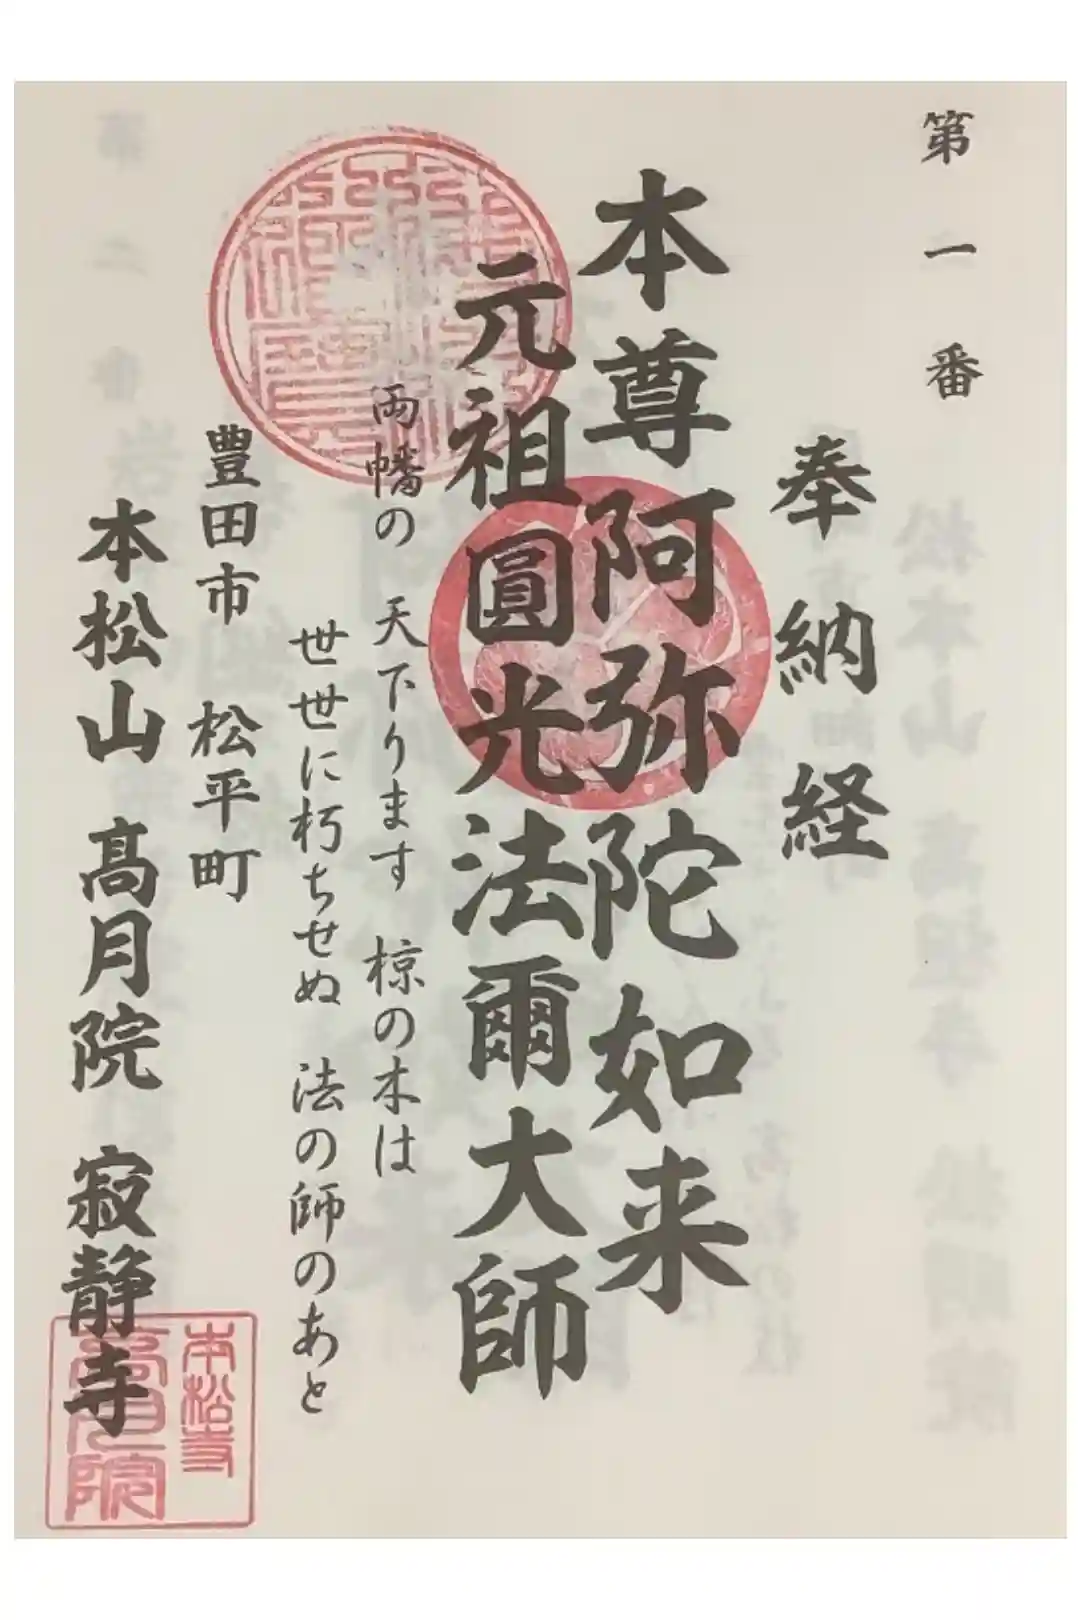 第一番
奉納経
本尊阿弥陀如来
元祖圓光法爾大師
両幡の 天下ります 椋の木は
世世に朽ちせぬ 法の師のあと
豊田市 松平町
本松山 髙月院 寂静寺
本松寺
高月院